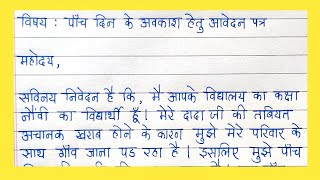 विषय : पाँच दिन के अवकाश हेतु आवेदन पत्र
महोदय,
सविनय निवेदन है कि, मैं आपके विद्यालय का कक्षा
नौंवी का विद्यार्थी हूँ। मेरे दादा जी की तबियत
अचानक खराब होने के कारण मुझे मेरे परिवार के
साथ गाँव जाना पड रहा है। इसलिए मुझे पाँच